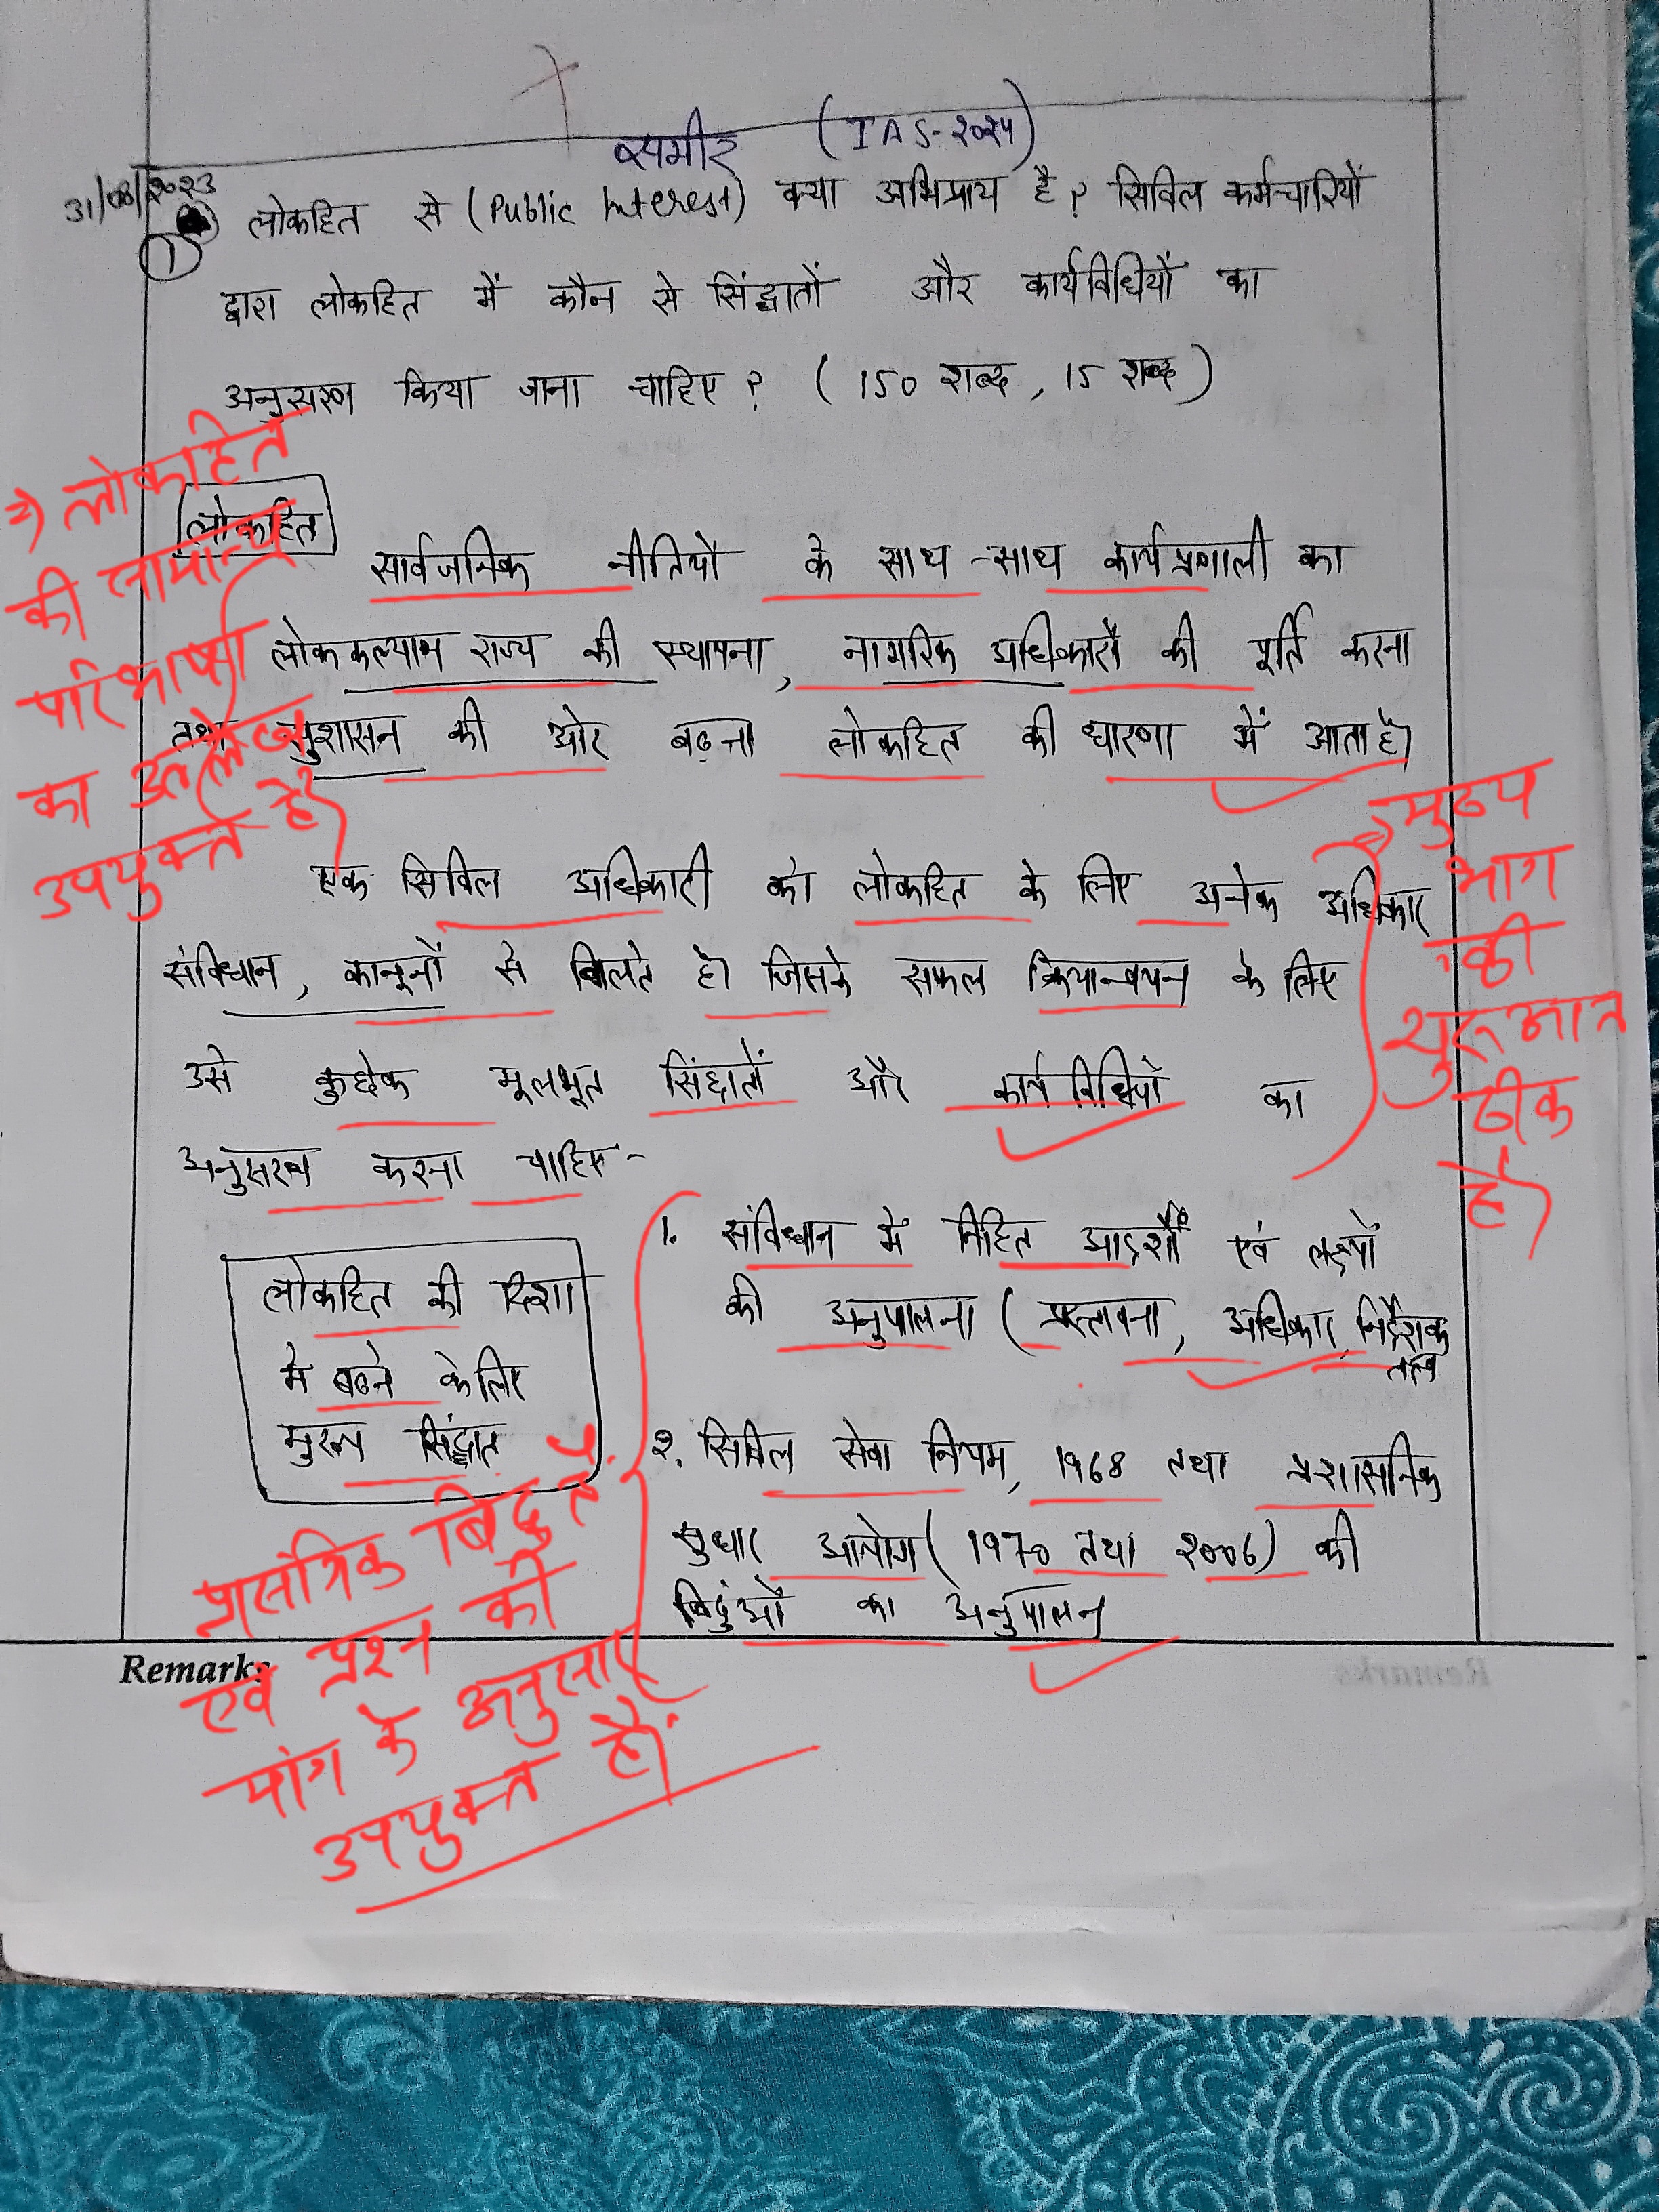 समीर (IAS-२०२५)
31/08/२०२३
① लोकहित से (Public Interest) क्या अभिप्राय है? सिविल कर्मचारियों
द्वारा लोकहित में कौन से सिंद्धातों और कार्यविधियों का
अनुसरण किया जाना चाहिए? (150 शब्द, 15 शब्द)
लोकहित
सार्वजनिक नीतियों के साथ-साथ कार्यप्रणाली का
लोककल्याण राज्य की स्थापना, नागरिक अधिकारों की पूर्ति करना
तथा सुशासन की ओर बढ़ना लोकहित की धारणा में आता है।
लोकहित
की सामान्य
परिभाषा
का उल्लेख
उपयुक्त है।
एक सिविल अधिकारी को लोकहित के लिए अनेक अधिकार
संविधान, कानूनों से मिलते है। जिसके सफल क्रियान्वयन के लिए
उसे कुछेक मूलभूत सिंद्दातों और कार्यविधियों का
अनुसरण करना चाहिए-
मुख्य
भाग
की
शुरुआत
ठीक
है।
लोकहित की दिशा
में बढ़ने के लिए
मुख्य सिंद्धात
1. संविधान में निहित आदर्शों एवं लक्ष्यों
की अनुपालना (प्रस्तावना, अधिकार, निर्देशक
तत्व
२. सिविल सेवा नियम, 1968 तथा प्रशासनिक
सुधार आयोग (1970 तथा २००6) की
बिंदुओं का अनुपालन
प्रासंगिक बिंदु है।
एवं प्रश्न की
मांग के अनुसार
उपयुक्त है।
Remarks